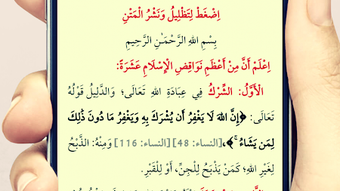 اِضْغَطْ لِتَظْلِيلُ وَنَشْرُ الْمَتْنِ
بِسْمِ اللهِ الرَّحْمَـٰنِ الرَّحِيمِ
اِعْلَمْ أَنَّ مِنْ أَعْظَمِ نَوَاقِضِ الْإِسْلَامِ عَشَرَةً:
الْأَوَّلُ: الشِّرْكُ فِي عِبَادَةِ اللهِ تَعَالَى؛ وَالدَّلِيلُ قَوْلُهُ
تَعَالَى: ﴿إِنَّ اللهَ لَا يَغْفِرُ أَن يُشْرَكَ بِهِ وَيَغْفِرُ مَا دُونَ ذَٰلِكَ
لِمَن يَشَاءُ ۚ﴾، [النساء: 48] [النساء: 116] وَمِنْهُ: الذَّبْحُ
لِغَيْرِ اللهِ؛ كَمَنْ يَذْبَحُ لِلْجِنِّ، أَوْ لِلْقَبْرِ.